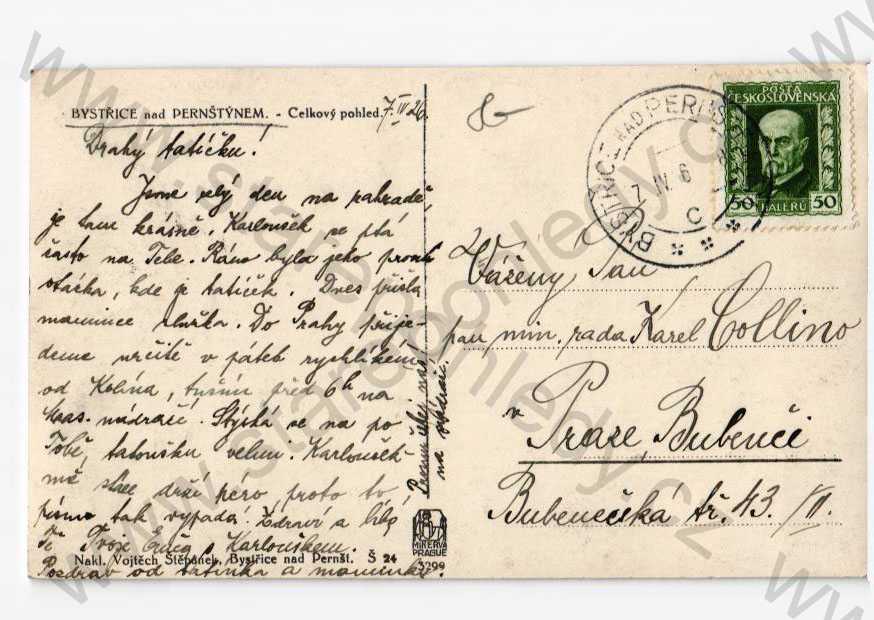 BYSTŘICE nad PERNŠTÝNEM. - Celkový pohled.
7/IV 26.
Drahý tatíčku!
Jsme celý den na zahradě,
je tam krásně. Karloušek se ptá
často na Tebe. Ráno byla jeho první
otázka, kde je tatíček. Dnes přišla
mamince služka. Do Prahy přije-
deme určitě v pátek rychlíkem
od Kolína, tuším před 6h na
Mas. nádraží. Stýská se na po
Tobě, tatoušku velmi. Karloušek
mě stále drží péro, proto to
písmo tak vypadá! Zdraví a líbá
Tě Tvoje s Karlouškem.
Pozdrav od tatínka a maminky.
Prosím čekej nás
na nádraží.
Nakl. Vojtěch Štěpánek, Bystřice nad Pernšt. Š 24
MINERVA
PRAGUE
3299
8-
BYSTŘICE NAD PERNŠ
7. IV. 6
C
POSTA
ČESKOSLOVENSKÁ
50 HALÉŘŮ 50
Vážený Pan
pan min. rada Karel Collino
v Praze Bubenči
Bubenečská tř. 43./II.
www.staropohledy.cz